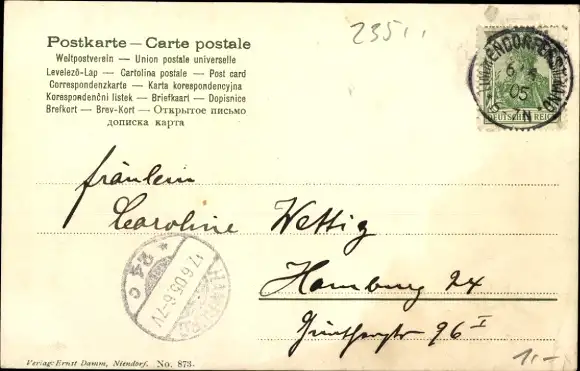 235
Postkarte — Carte postale
Weltpostverein — Union postale universelle
Levelező-Lap — Cartolina postale — Post card
Correspondenzkarte — Karta korespondencyjna
Korespondenční listek — Briefkaart — Dopisnice
Brefkort — Brev-Kort — Открытое письмо
дописка карта
05
DEUTSCHES REICH
Fräulein
Caroline Wettig
Hamburg 24
96 I
17.6.05.6-7V
* 24 c
Verlag: Ernst Damm, Niendorf. No. 873.
1.-